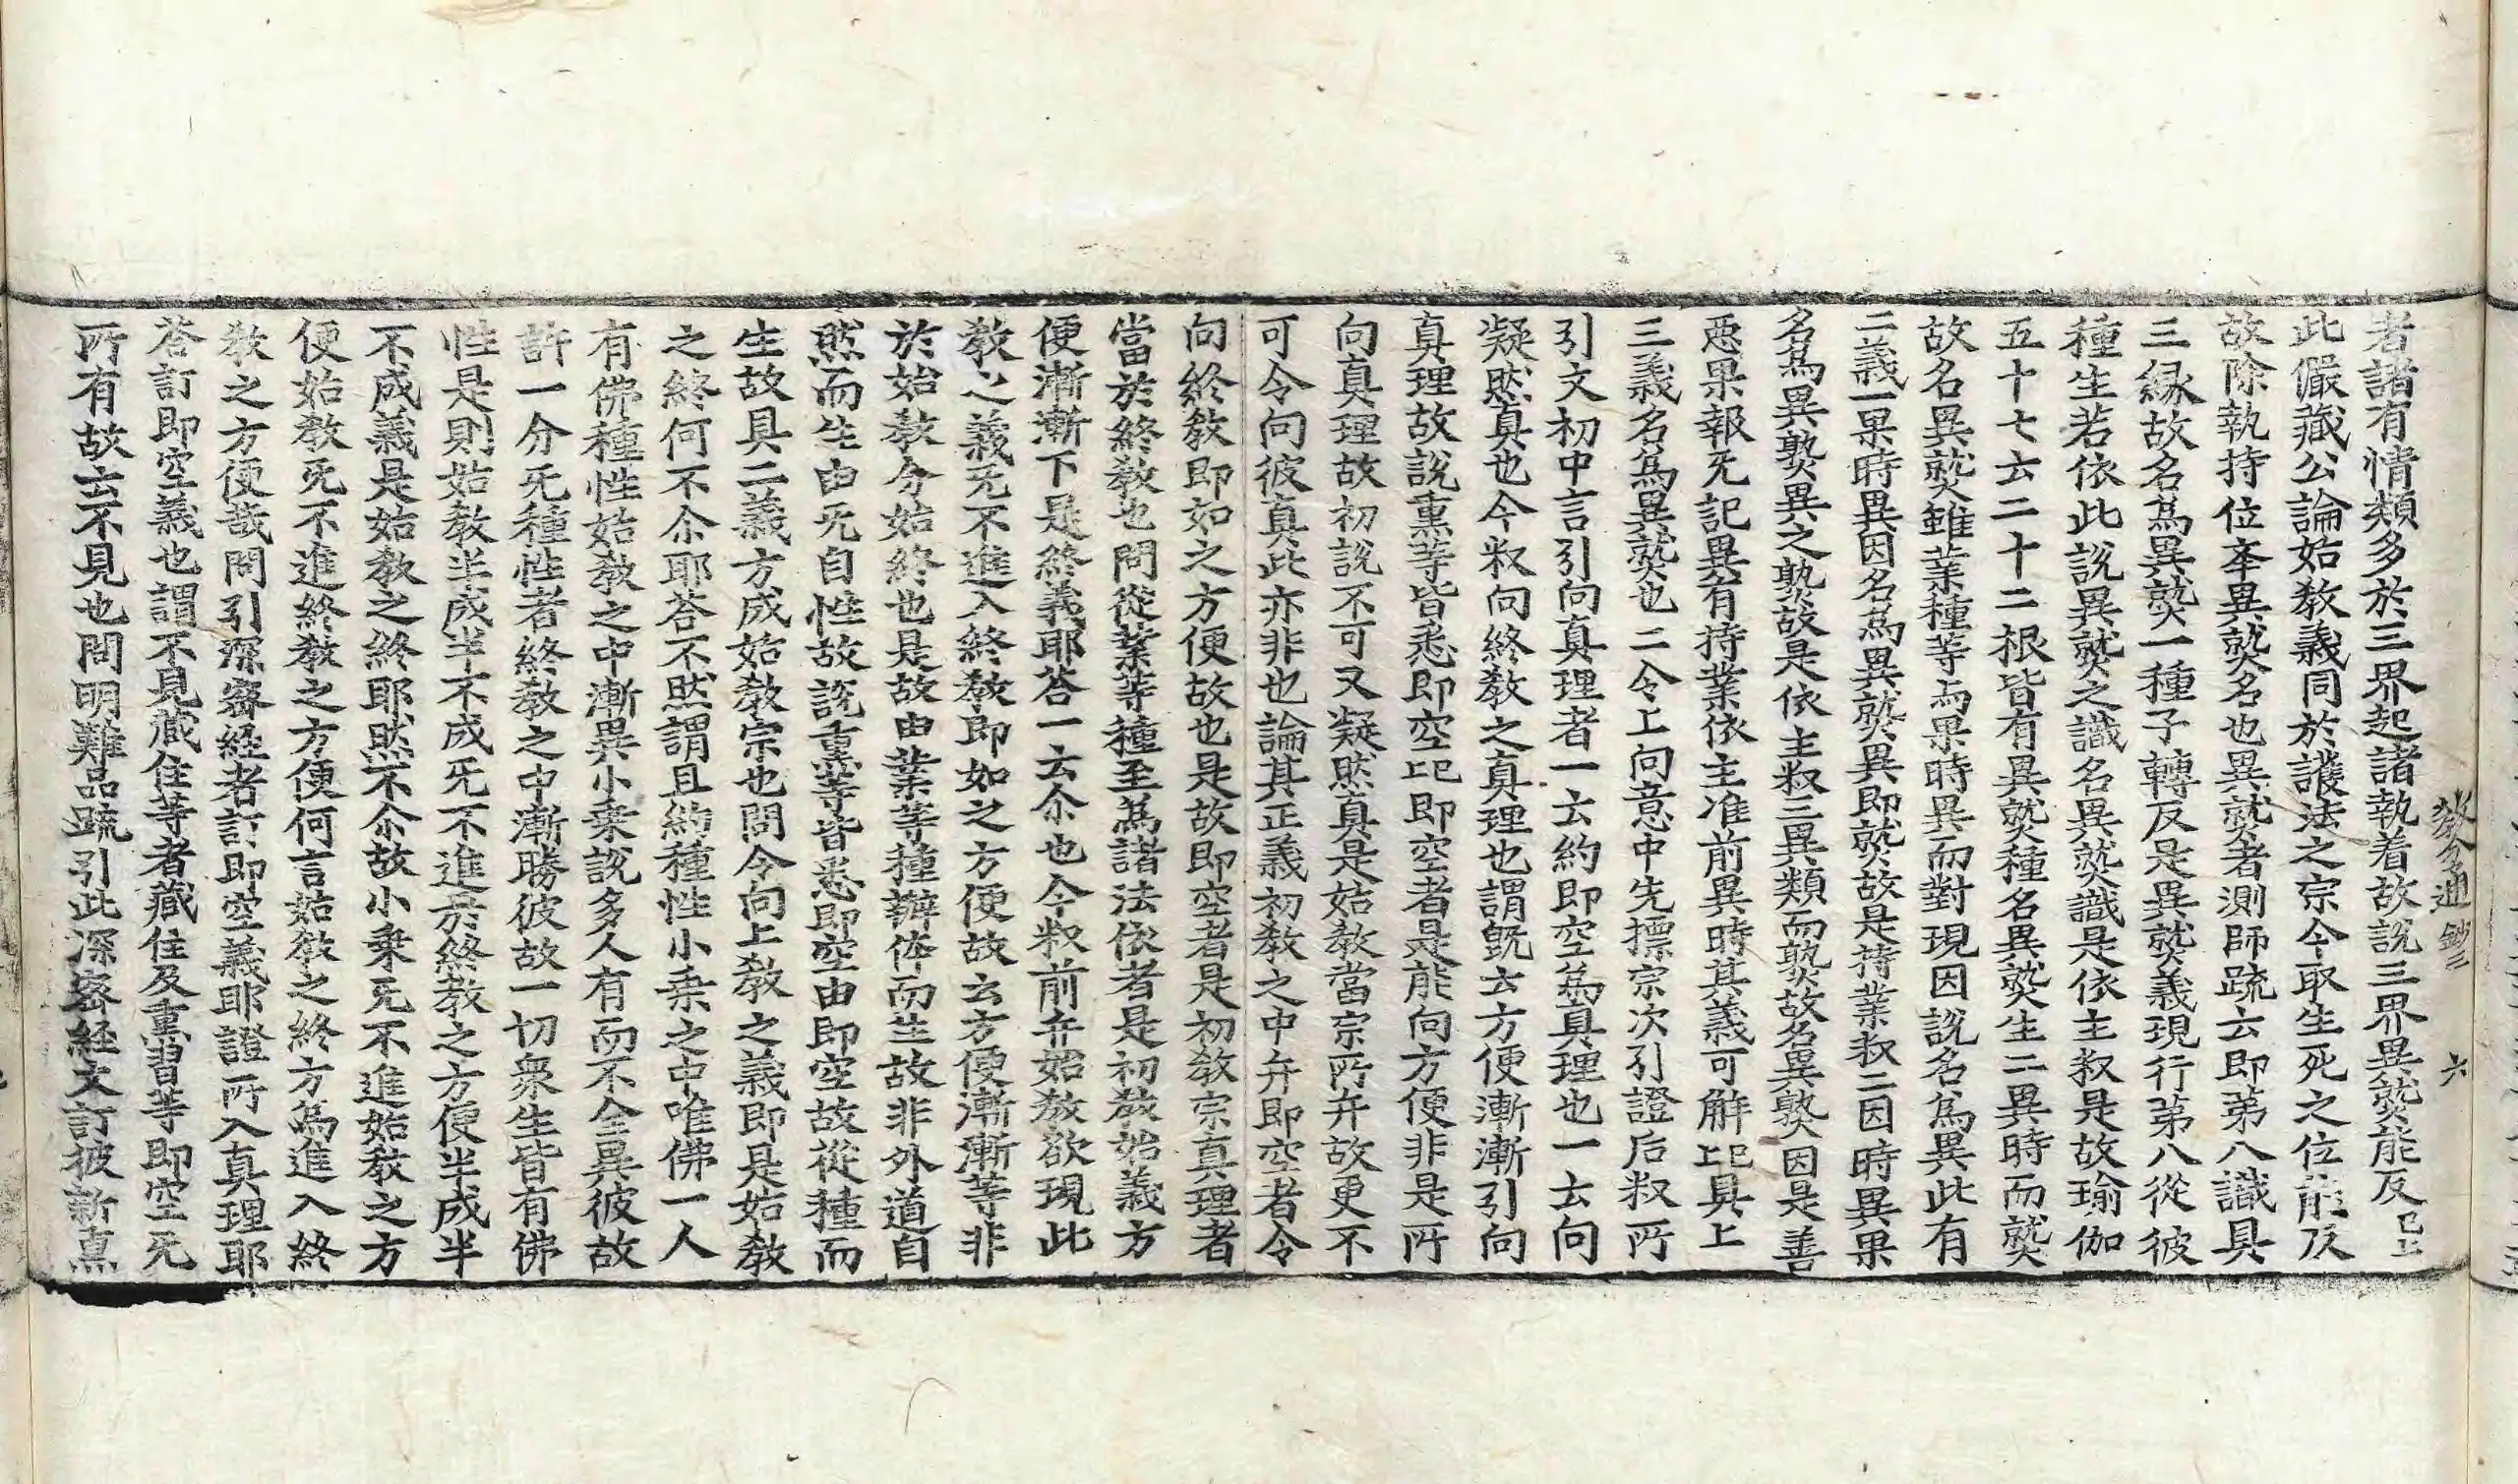 教分通鈔二 六
者諸有情類多於三界起諸執着故說三界異𤍨能反已上
此儼藏公論始教義同於護法之宗今取生死之位能反
故除執持位本異𤍨名也異𤍨者測師䟽云即苐八識具
三縁故名爲異𤍨一種子轉反是異𤍨義現行苐八從彼
種生若依此說異𤍨之識名異𤍨識是依主𥼶是故瑜伽
五十七云二十二根皆有異𤍨種名異𤍨生二異時而𤍨
故名異𤍨雖業種等而果時異而對現因說名爲異此有
二義一果時異因名爲異𤍨異即𤍨故是持業𥼶二因時異果
名爲異𤍨異之𤍨故是依主𥼶三異類而𤍨故名異𤍨因是善
惡果報无記異有持業依主准前異時其義可解上已具上
三義名爲異𤍨也二令上向意中先摽宗次引證后𥼶所
引文初中言引向真理者一云約即空爲真理也一云向
凝然真也今𥼶向終教之真理也謂旣云方便漸漸引向
真理故說熏等皆悉即空上已即空者是能向方便非是所
向真理故初說不可又凝然真是始教當宗所弁故更不
可令向彼真此亦非也論其正義初教之中弁即空者令
向終教即如之方便故也是故即空者是初教宗真理者
當於終教也問從業等種至爲諸法依者是初教始義方
便漸漸下是終義耶荅一云尒也今𥼶前弁始教欲現此
教之義旡不進入終教即如之方便故云方便漸漸等非
於始教分始終也是故由業等種辦体而生故非外道自
然而生由旡自性故說熏等皆悉即空由即空故從種而
生故具二義方成始教宗也問令向上教之義即是始教
之終何不尒耶荅不然謂且約種性小乗之中唯佛一人
有佛種性始教之中漸異小乗說多人有而不全異彼故
許一分旡種性者終教之中漸勝彼故一切衆生皆有佛
性是則始教半成半不成旡不進於終教之方便半成半
不成義是始教之終耶然不尒故小乗旡不進始教之方
便始教旡不進終教之方便何言始教之終方爲進入終
教之方便哉問引深密経者訂即空義耶證所入真理耶
荅訂即空義也謂不見蔵住等者藏住及熏習等即空旡
所有故云不見也問明難品䟽引此深密経文訂彼新熏